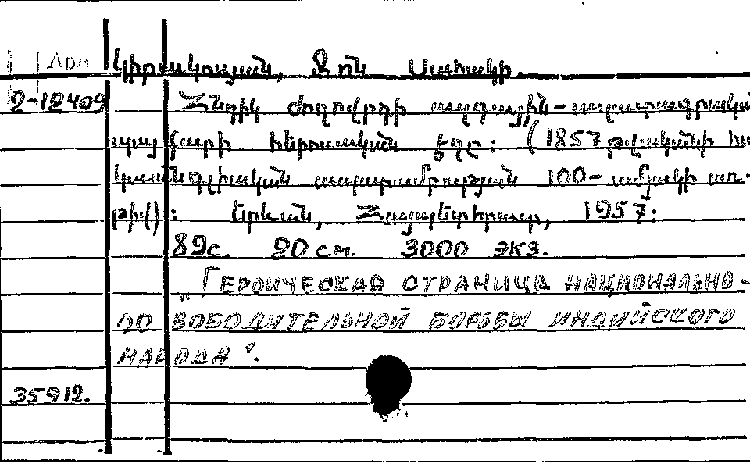 Арм
Կիրակոսյան, Ջոն Սահակի.
2-12409 Հնդիկ ժողովրդի ազգային-ազատագրական
պայքարի հերոսական էջը: (1857 թվականի հա
կաանգլիական ապստամբության 100-ամյակի առ-
թիվ): Երևան, Հայպետհրատ, 1957:
89с. 20 см. 3000 экз.
"Героическая страница национально-
ОСВОБОДИТЕЛЬНОЙ БОРЬБЫ ИНДИЙСКОГО
НАРОДА".
35912.